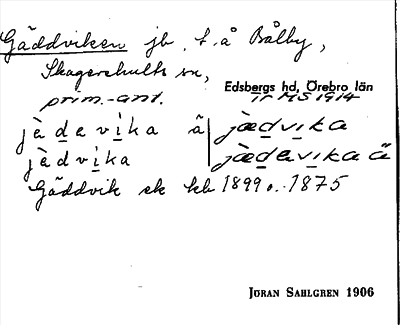 Gäddviken jb, t. å Bålby,
Skagershults sn,
Edsbergs hd, Örebro län
prim.-ant. tr MS 1914
jàdevika ä | jædvika
jàdvika | jædevika ä
Gäddvik ek kb 1899 o. 1875
JÖRAN SAHLGREN 1906